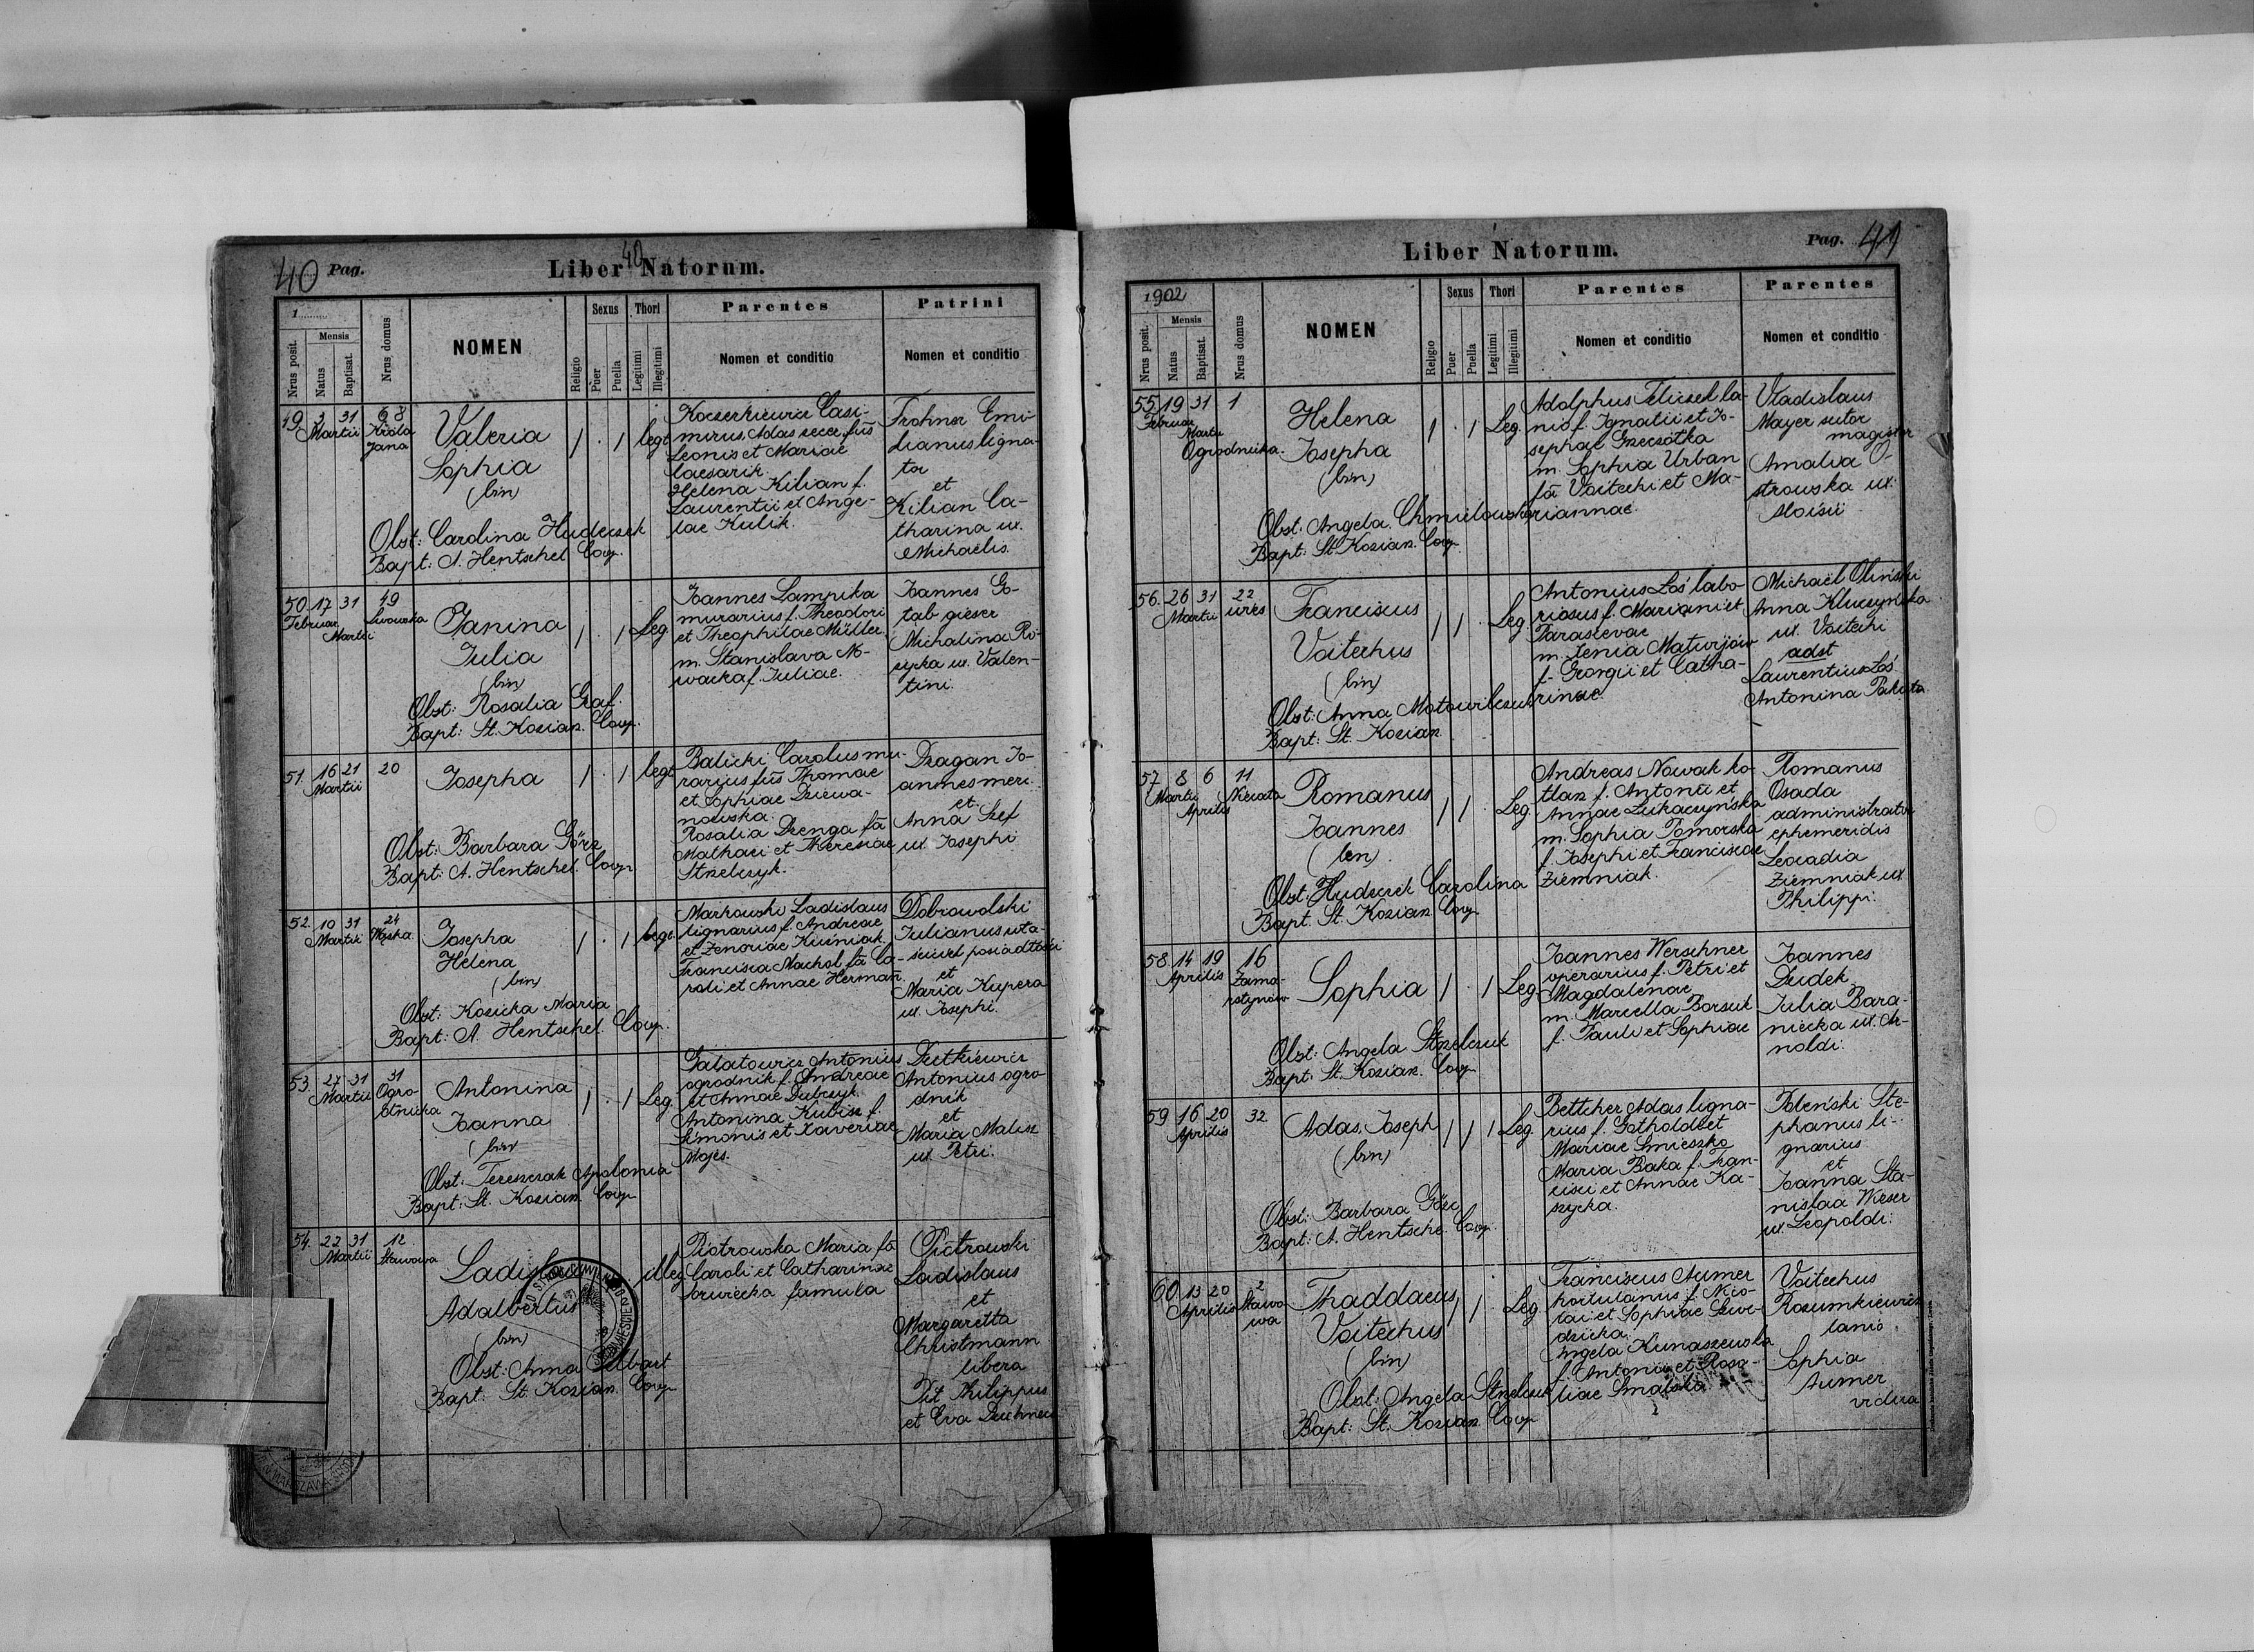 40 Pag.
40
Liber Natorum.
1
Nrus posit.
Mensis
Natus
Baptisat.
Nrus domus
NOMEN
Religio
Sexus
Puer
Puella
Thori
Legitimi
Illegitimi
Parentes
Nomen et conditio
Patrini
Nomen et conditio
49 3 31 68
Martii Króla
Jana
Valeria
Sophia
(bin)
1 . 1 legt
Obst: Carolina Hudeczek
Bapt: A. Hentschel Coop.
Koczerkiewicz Casi-
mirus
Leonis et Mariae
Helena Kilian f.
Laurentii et Ange-
lae Kulik.
Frohner Emi-
lianus ligna-
tor
et
Kilian Ca-
tharina ux.
Michaelis.
50. 17 31 49
Februar Lwowska
Martii
Janina
Julia
(bin)
1 . 1 Leg.
Obst: Rosalia Graf.
Bapt: St. Kozian. Coop.
Joannes Lampika
murarius f. Theodori
et Theophilae Müller
m. Stanislava No-
wacka f. Juliae.
Joannes Go-
tab gieser
Michalina Ró-
zycka ux. Valen-
tini.
51. 16 21 20
Martii
Josepha
1 . 1 legt
Obst: Barbara Görz
Bapt: A. Hentschel. Coop.
Balicki Carolus mu-
rarius fius Thomae
et Sophiae Dziewa-
nowska.
Rosalia Dzenga fa
Mathaei et Theresiae
Strzelczyk.
Dragan Jo-
annes merc.
et
Anna Szef
ux Josephi
52. 10 31 24
Martii Wąska
Josepha
Helena
(bin)
1 . 1 legt
Obst: Kozicka Maria
Bapt: A. Hentschel. Coop.
Markowski Ladislaus
lignarius f. Andreae
et Zenoviae Kuśniak.
Francisca Machol fa Ca-
roli et Annae Herman
Dobrowolski
Julianus wła-
ściciel posiadłości
et
Maria Kupera
ux. Josephi.
53. 27 31 31
Martii Ogro-
dnicka
Antonina
Joanna
(bin)
1 . 1 Leg
Obst: Tereszczak Apolonia
Bapt: St. Kozian. Coop.
Galatowicz Antonius
ogrodnik f. Andreae
et Annae Dubczyk.
Antonina Kubisz f.
Simonis et Xaveriae
Mojes.
Dretkiewicz
Antonius ogro-
dnik
et
Maria Malisz
ux Petri.
54. 22 31 12
Martii Stawowa
Adalbertus
(bin)
illeg
Obst: Anna
Bapt: St. Kozian. Coop.
Piotrowska Maria fa
Caroli et Catharinae
famula
Piotrowski
Ladislaus
et
Margaretta
Christmann
libera
Pit Philippus
et Eva
Liber Natorum.
Pag. 41
1902
Nrus posit.
Mensis
Natus
Baptisat.
Nrus domus
NOMEN
Religio
Sexus
Puer
Puella
Thori
Legitimi
Illegitimi
Parentes
Nomen et conditio
Parentes
Nomen et conditio
55 19 31 1
Februar
Martii
Ogrodnicka.
Helena
Josepha
(bin)
1 . 1 Leg.
Obst: Angela Chmielowska
Bapt: St. Kozian. Coop
Adolphus Feliczek la-
nio f. Ignatii et Jo-
sephae Grzeczotka
m. Sophia Urban
fa Voitechi et Ma-
riannae.
Vladislaus
Mayer sutor
magister
Amalia O-
strowska ux.
Aloisii
56. 26 31 22
Martii
Franciscus
Voitechus
(bin)
1 1 . Leg.
Obst: Anna Motowilczuk
Bapt: St. Kozian.
Antonius Łoś labo-
riosus f. Mariani et
Parascevae
m. Xenia Matwijów
f. Georgii et Catha-
rinae.
Michaël Oliński
Anna Kluczyńska
ux. Voitechi
adst
Laurentius Łoś
Antonina Pakosta
57. 8 6 11
Martii
Aprilis
Romanus
Joannes
(bin).
1 1 . Leg.
Obst: Hudeczek Carolina
Bapt. St. Kozian. Coop
Andreas Nowak ko-
tlarz f. Antonii et
Annae Łukaczyńska
m. Sophia Pomorska
f. Josephi et Franciscae
Ziemniak.
Romanus
Osada
administrator
ephemeridis
Leocadia
Ziemniak ux
Philippi.
58. 14 19 16
Aprilis Zama-
rstynów
Sophia
1 . 1 Leg
Obst: Angela Strzelczuk
Bapt: St. Kozian. Coop
Joannes Werschner
operarius f. Petri et
Magdalenae
m. Marcella Borsuk
f. Pauli et Sophiae
Joannes
Dudek
Julia Bara-
niecka ux. Ar-
noldi.
59 16 20 32.
Aprilis
Adas. Joseph
(bin)
1 1 1 Leg.
Obst: Barbara Görz
Bapt: A. Hentschel. Coop.
Bettcher Adas ligna-
rius f. Gotholdbet
Mariae Smieszko
Maria Baka f. Fran-
cisci et Annae Ka-
szycka.
Poleński Ste-
phanus li-
gnarius
et
Joanna Sta-
nislaa Wieser
ux Leopoldi.
60. 13 20 2
Aprilis Stawo
wa
Thaddaeus
Voitechus
(bin)
1 1 . Leg.
Obst: Angela Strzelczuk
Bapt: St. Kozian. Coop
Franciscus Aumer
hortulanus f. Nico-
lai et Sophiae Szwe-
dzicka.
Angela Kunaszewska
f. Antonii et Rosa-
liae Smalska
Voitechus
Rozumkiewicz
lanio.
Sophia
Aumer
vidua